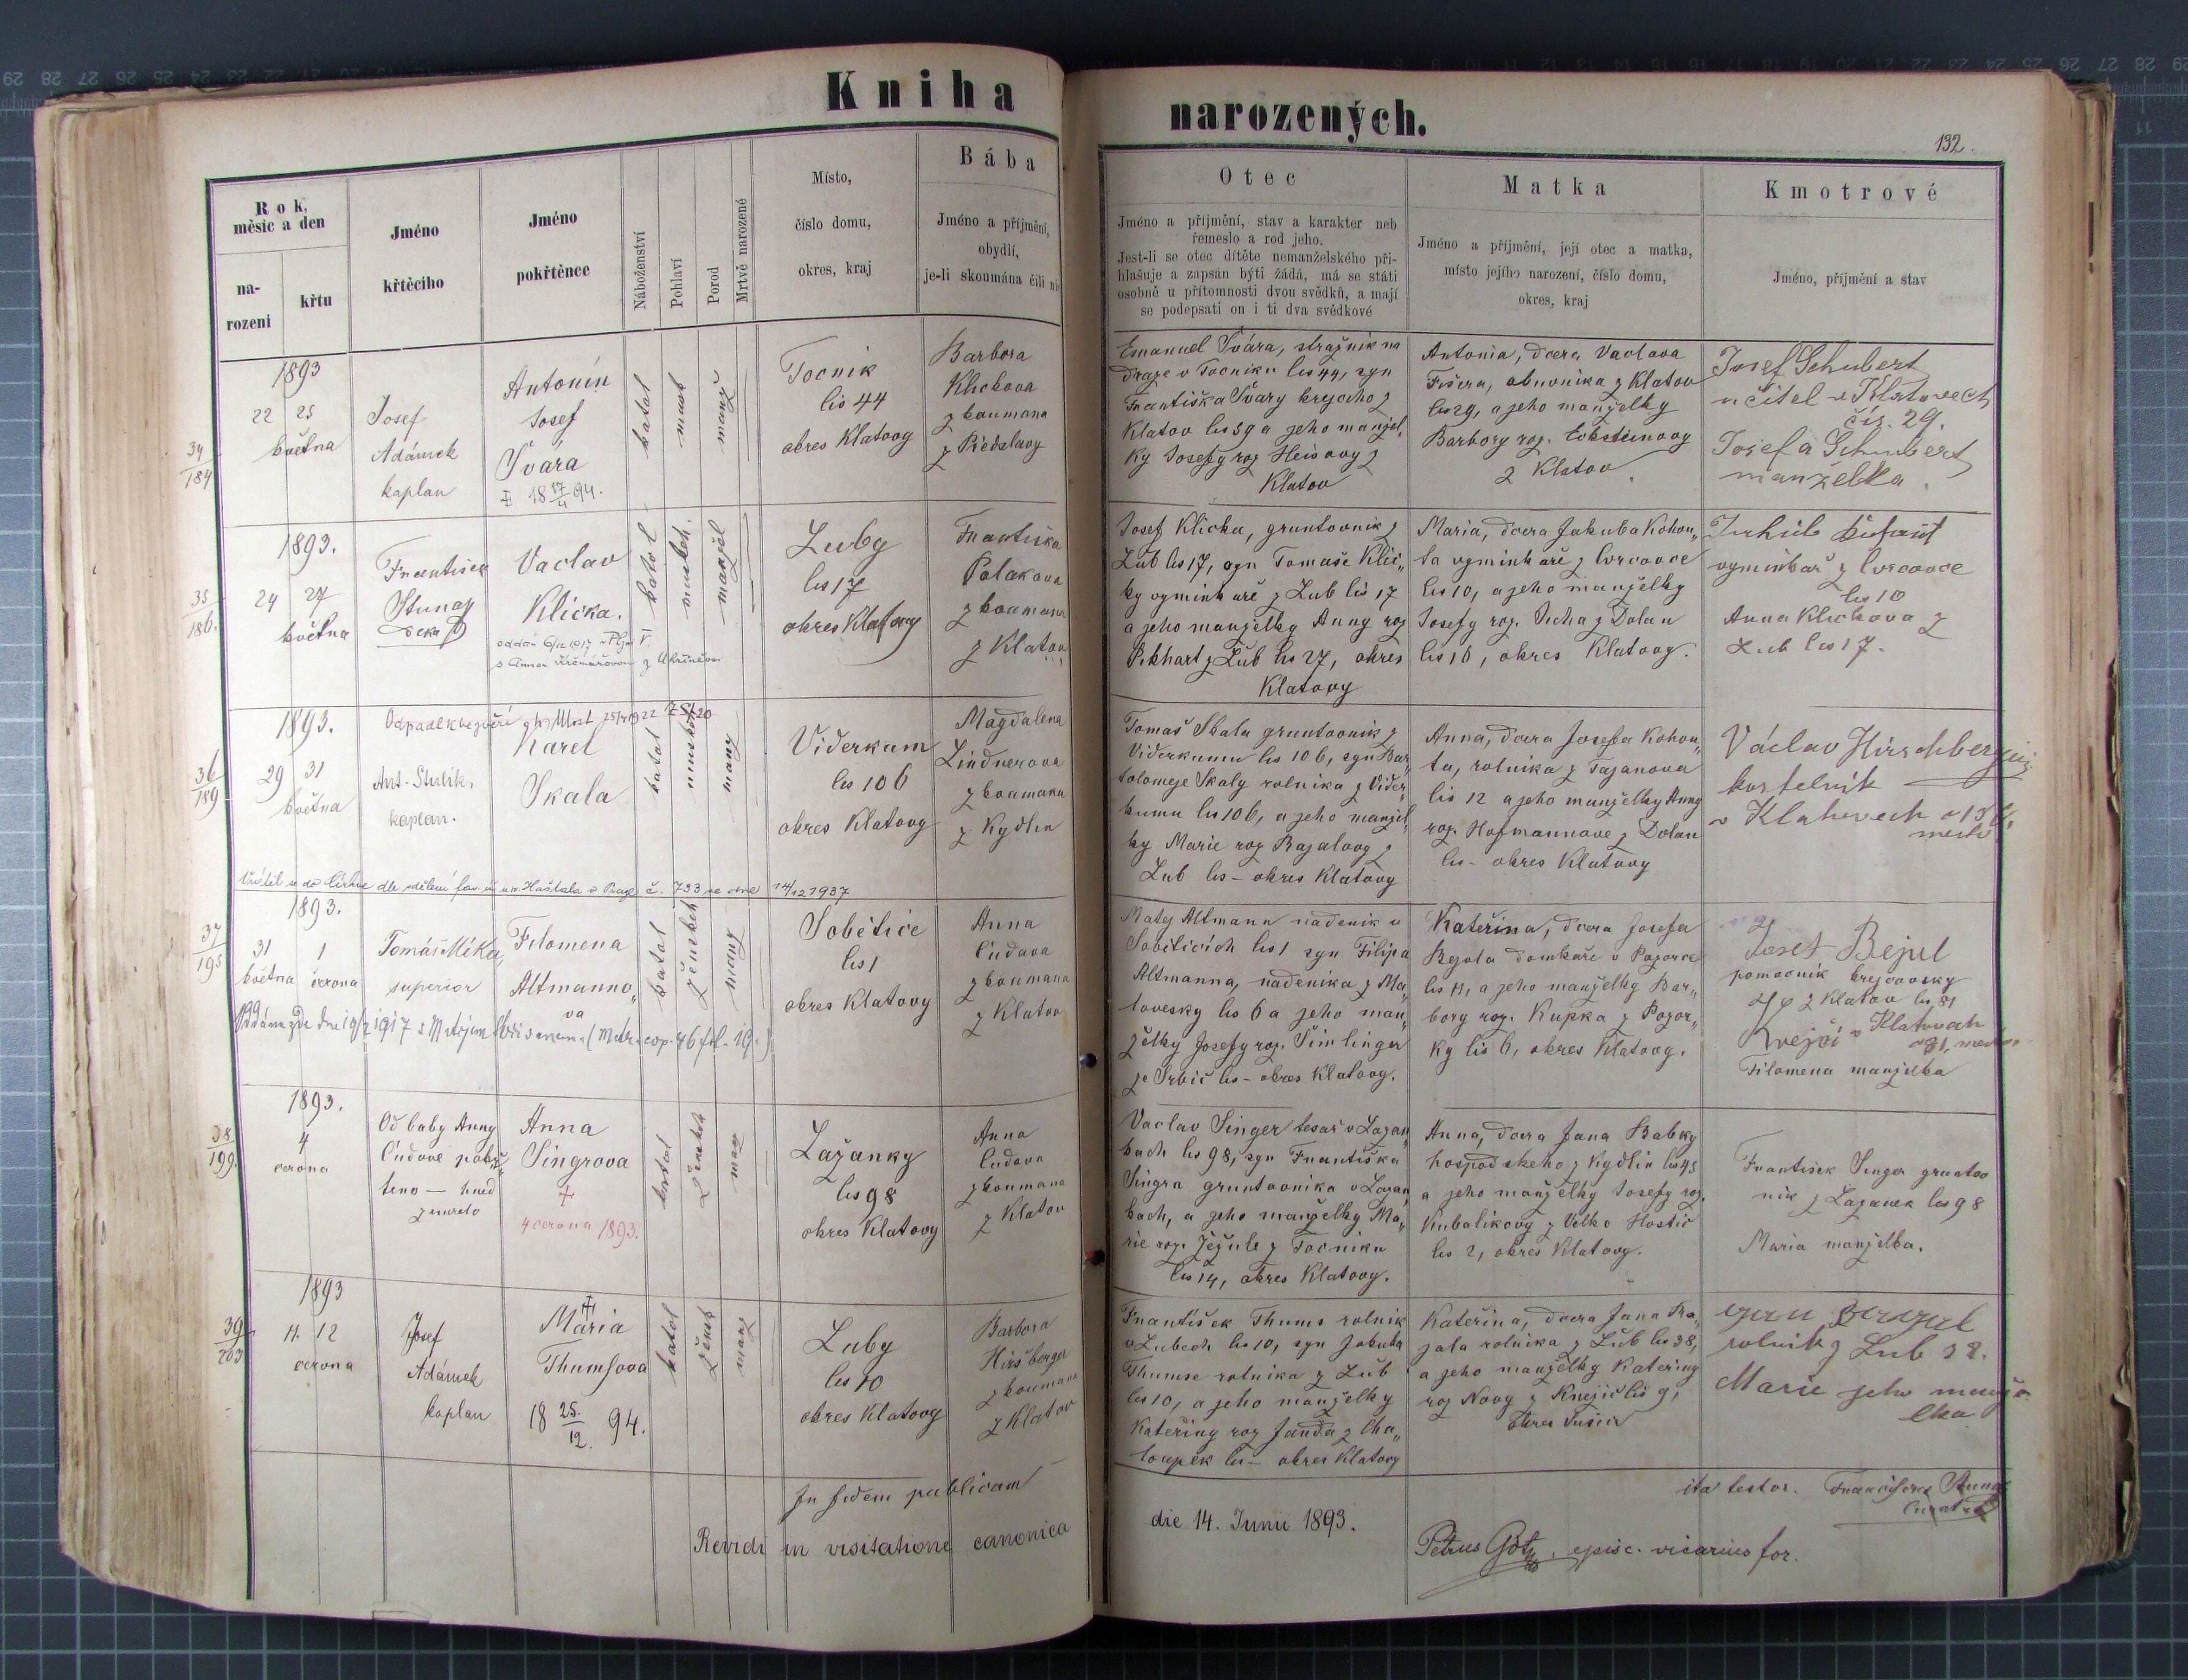 Kniha narozených.
192.
Rok, měsic a den
na-
rozeni
křtu
Jméno
křtěcího
Jméno
pokřtěnce
Náboženství
Pohlaví
Porod
Mrtvě narozené
Místo,
číslo domu,
okres, kraj
Bába
Jméno a příjmění,
obydlí,
je-li skoumána čili nic
Otec
Jméno a příjmění, stav a karakter neb
řemeslo a rod jeho.
Jest-li se otec dítěte nemanželského při-
hlašuje a zapsán býti žádá, má se státi
osobně u přítomnosti dvou svědků, a mají
se podepsati on i ti dva svědkové
Matka
Jméno a příjmění, její otec a matka,
místo jejího narození, číslo domu,
okres, kraj
Kmotrové
Jméno, příjmění a stav
34
184
1893
22 25
května
Josef
Adámek
kaplan
Antonín
Josef
Švára
18 17/4 94.
katol
muž
manž
Točnik
čís 44
okres Klatovy
Barbora
Klickova
zkoumana
z Předslavy
Emanuel Švára, stražnik na
draze v Točniku čis 44, syn
Františka Šváry krejcho z
Klatov čis 59 a jeho manžel„
ky Josefy roz Heisovy z
Klatov
Antonia, dcera Vaclava
Fišera, obuvnika z Klatov
čis 29, a jeho manželky
Barbory roz.
z Klatov
Josef Schubert
učitel v Klatovech
čís. 29.
Josefa Schubert
manželka.
35
186.
1893.
24 27
května
František
Štunaz
děkan
Vaclav
Klicka.
katol
mužsk.
manžel
Luby
čis 17
okres Klatovy
Františka
Polakova
zkoumana
z Klatov
Josef Klicka, gruntovnik z
Lub čis 17, syn Tomaše Klic„
ky vyminkaře z Lub čis 17
a jeho manželky Anny roz
Pikhart z Lub čis 27, okres
Klatovy
Maria, dcera Jakuba Kohou„
ta vyminkaře z Cvrcovce
čis 10, a jeho manželky
Josefy roz. Vicha z Dolan
čis 10, okres Klatovy.
vyminkař z Cvrcovce
čis 10
Anna Klickova z
Lub čis 17.
36
189
1893.
Odpadl k bezvěří
29 31
května
Ant. Stulík,
kaplan.
Karel
Skala
katol
mužsk
manž
Viderkum
čis 106
okres Klatovy
Magdalena
Lindnerova
zkoumana
z Kydlin
Tomaš Skala gruntovnik z
Viderkumu čis 106, syn Bar„
tolomeje Skaly rolnika z Vider„
kumu čis 106, a jeho manžel„
ky Marie roz Rajalovy z
Lub čis – okres Klatovy
Anna, dcera Josefa Kohou„
ta, rolnika z Tajanova
čis 12 a jeho manželky Anny
roz. Hofmannove z Dolan
čis – okres Klatovy
Václav Hirschberger
kostelník
v Klatovech
Vrátil se do Církve dle sdělení far. úř. u sv. Haštala v Praze č. 733 ze dne 14/12 1937
37
195
1893.
31 1
května června
Tomáš Míka,
superior
Filomena
Altmanno„
va
katol
ženskeh
manž
Sobětice
čis 1
okres Klatovy
Anna
Čudova
zkoumana
z Klatov
Matej Altmann nadenik v
Sobětičich čis 1 syn Filipa
Altmanna, nadenika z Ma„
lovesky čis 6 a jeho man„
želky Josefy roz. Simlinger
ze Srbic čis – okres Klatovy.
Kateřina, dcera Josefa
Bejvla domkaře v Pozorce
čis 11, a jeho manželky Bar„
bory roz. Kupka z Pozor„
ky čis 6, okres Klatovy.
Josef Bejvl
pomocnik krejcovsky
z Klatov čis 81
Krejčí v Klatovech
Filomena manželka
38
199
1893.
4
června
Od baby Anny
Čudove pokř„
teno – hned
zemrelo
Anna
Singrova
4 cervna 1893.
katol
ženskeh
manž
Lažanky
čis 98
okres Klatovy
Anna
Čudova
zkoumana
z Klatov
Vaclav Singer tesař v Lažan„
kach čis 98, syn Františka
Singra gruntovnika v Lažan„
kach, a jeho manželky Ma„
rie roz. Ježule z Točniku
čis 14, okres Klatovy.
Anna, dcera Jana Babky
hospodskeho z Kydlin čis 45
a jeho manželky Josefy roz.
Kubalikovy z Velko Hostic
čis 2, okres Klatovy.
František Singer gruntov
nik z Lažanek čis 98
Maria manželka.
39
203
1893
11. 12
června
Josef
Adámek
kaplan
Maria
Thumsova
18 25./12. 94.
katol
žensk
manž
Luby
čis 10
okres Klatovy
Barbora
Hiršberger
zkoumana
z Klatov
František Thums rolnik
v Lubech čis 10, syn Jakuba
Thumse rolnika z Lub
čis 10, a jeho manželky
Kateřiny roz Janda z Cha„
loupek čis – okres Klatovy
Kateřina, dcera Jana Ra„
jala rolnika z Lub čis 38,
a jeho manželky Kateřiny
roz Novy z Knejic čis 9,
okres Sušice
rolnik z Lub 38.
Marie jeho manže
lka
In fidem publicam
ita testor. Franciscus
Curatus
Revidi in visitatione canonica
die 14. Junii 1893.
Petrus episc. vicarius for.